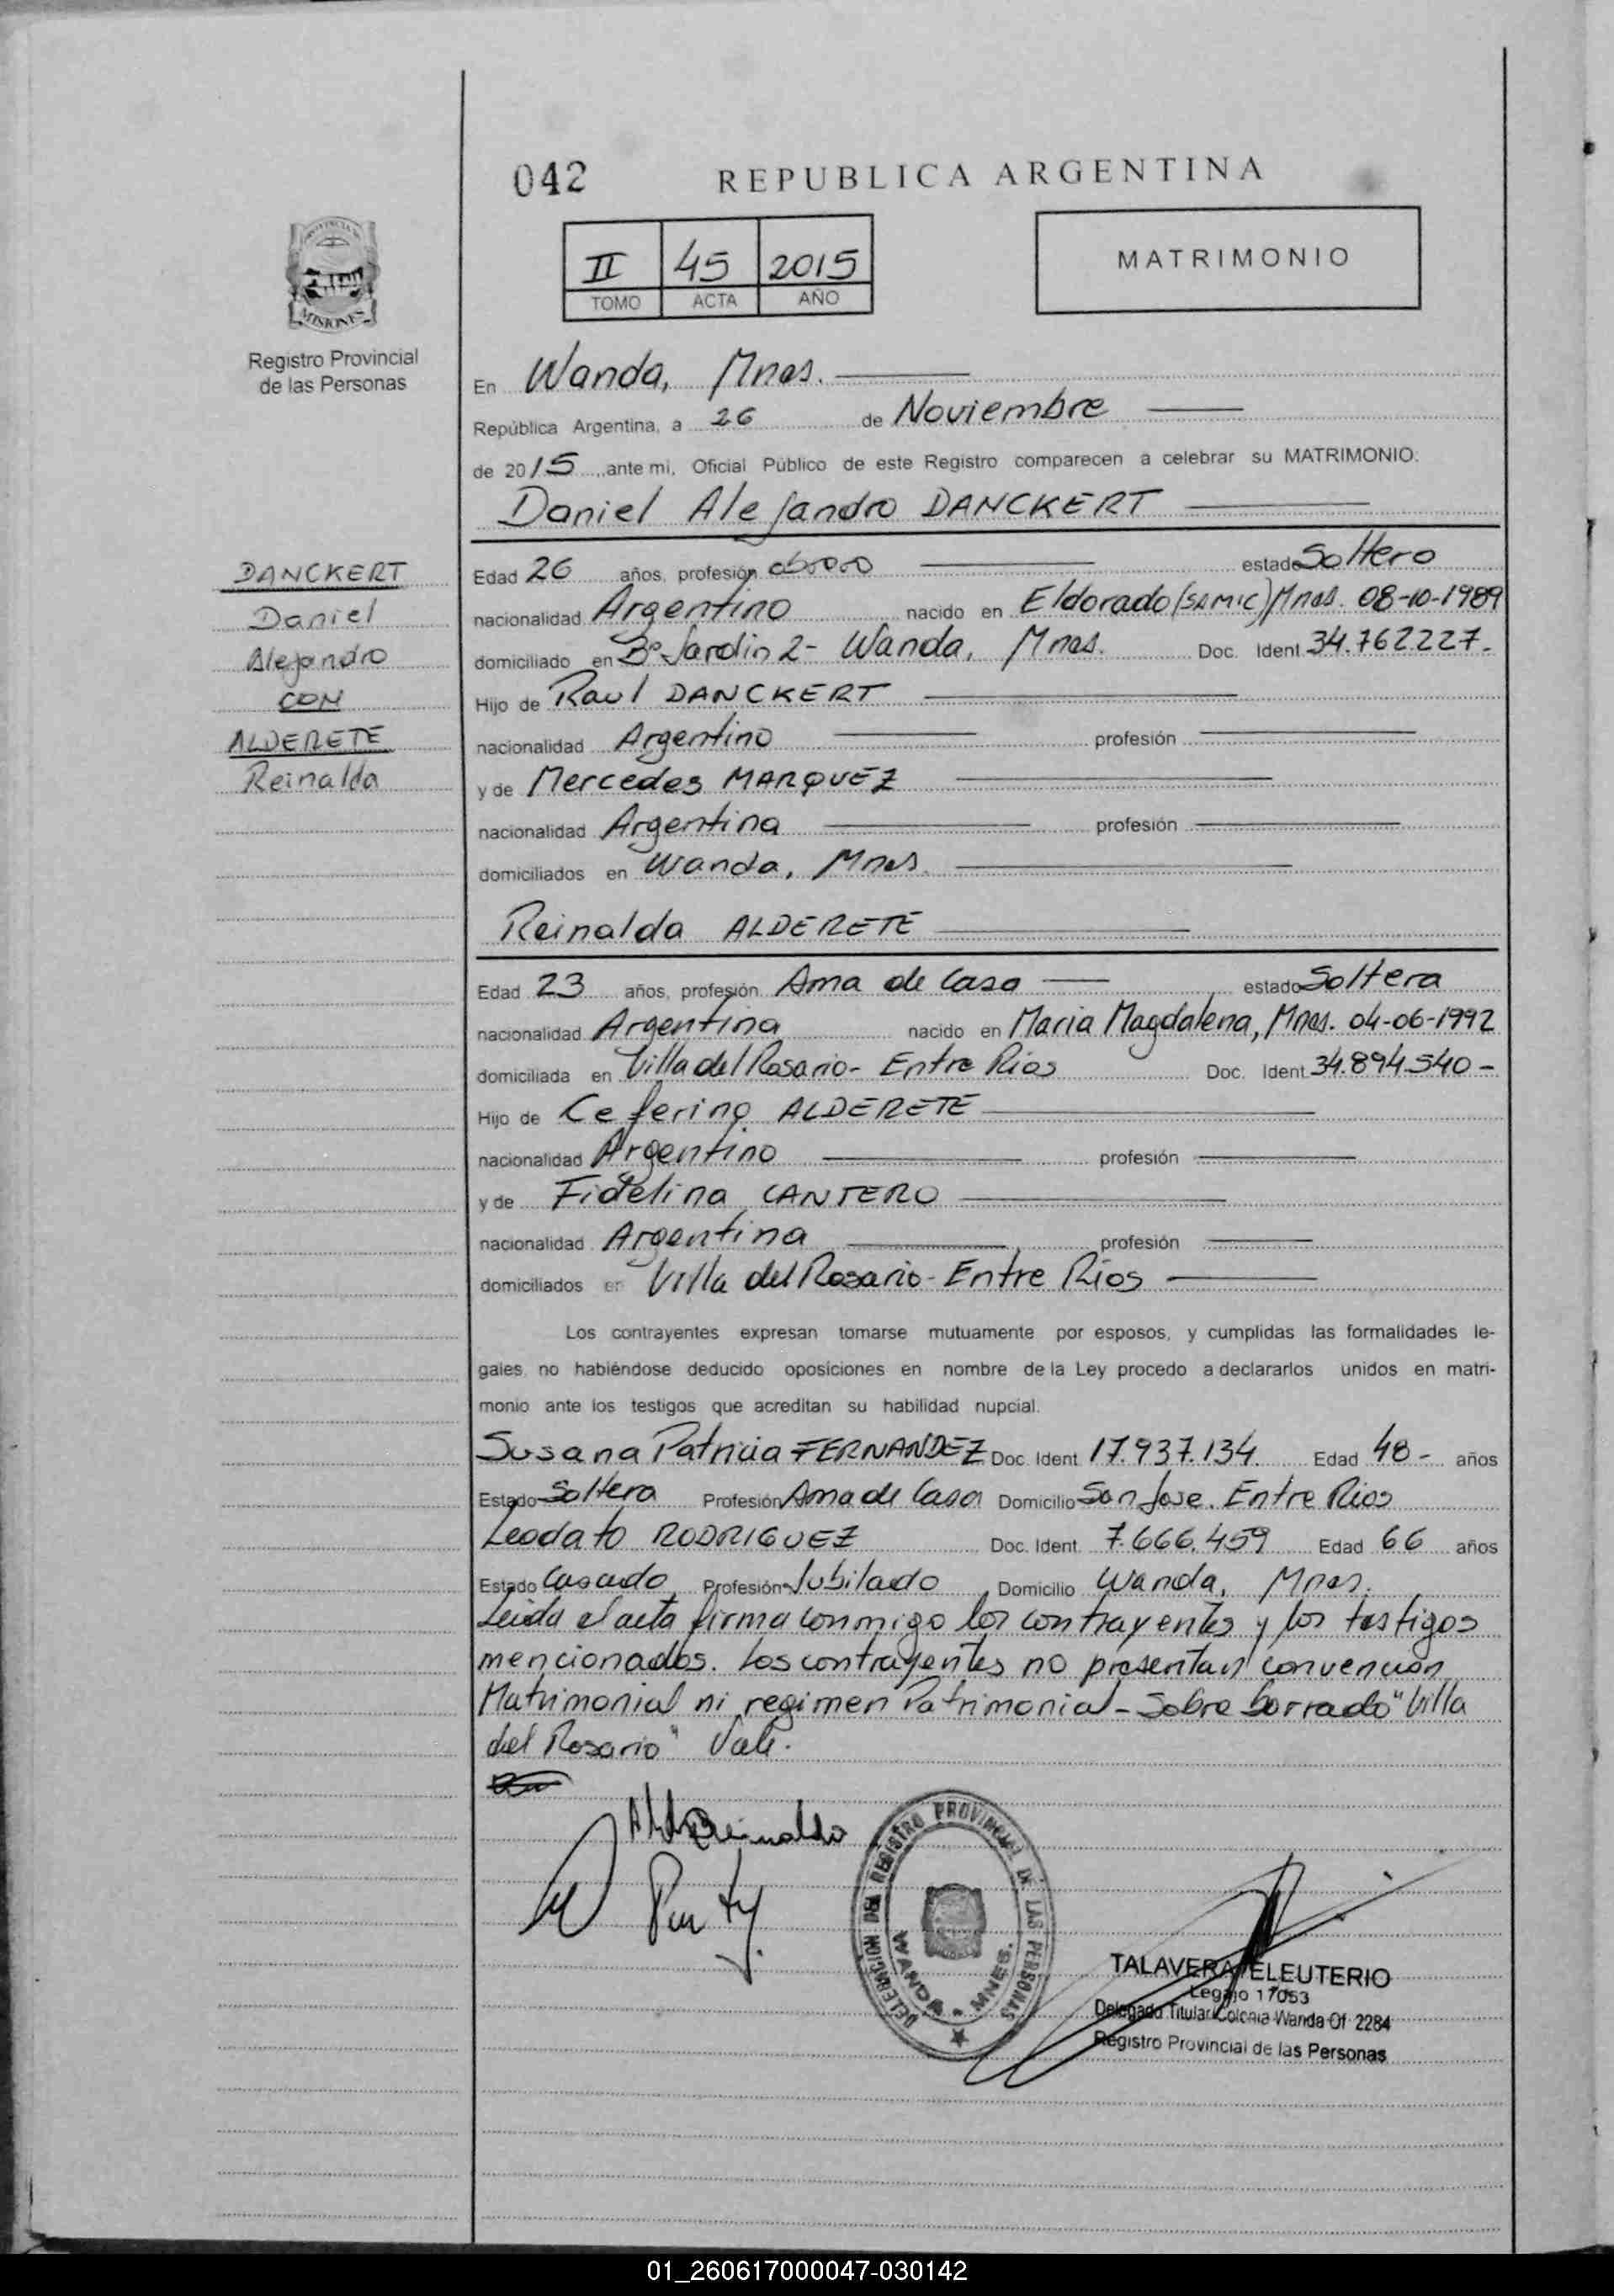 042
REPUBLICA ARGENTINA
II 45 2015
TOMO ACTA AÑO
MATRIMONIO
MISIONES
Registro Provincial
de las Personas
En Wanda, Mnes.
República Argentina, a 26 de Noviembre
de 2015 ,ante mi, Oficial Público de este Registro comparecen a celebrar su MATRIMONIO:
Daniel Alejandro DANCKERT
DANCKERT
Daniel
Alejandro
CON
ALDERETE
Reinalda
Edad 26 años, profesión estado Soltero
nacionalidad Argentino nacido en Eldorado (SAMIC) Mnes. 08-10-1989
domiciliado en Bº Jardin 2- Wanda, Mnes. Doc. Ident. 34.762.227.-
Hijo de Raul DANCKERT
nacionalidad Argentino profesión
y de Mercedes MARQUEZ
nacionalidad Argentina profesión
domiciliados en Wanda, Mnes.
Reinalda ALDERETE
Edad 23 años, profesión Ama de Casa estado Soltera
nacionalidad Argentina nacido en Maria Magdalena, Mnes. 04-06-1992
domiciliada en Villa del Rosario- Entre Rios Doc. Ident. 34.894.540-
Hijo de Ceferino ALDERETE
nacionalidad Argentino profesión
y de Fidelina CANTERO
nacionalidad Argentina profesión
domiciliados en Villa del Rosario- Entre Rios
Los contrayentes expresan tomarse mutuamente por esposos, y cumplidas las formalidades le-
gales, no habiéndose deducido oposiciones en nombre de la Ley procedo a declararlos unidos en matri-
monio ante los testigos que acreditan su habilidad nupcial.
Susana Patricia FERNANDEZ Doc. Ident. 17.937.134. Edad 48- años
Estado Soltera Profesión Ama de Casa Domicilio San Jose. Entre Rios
Leodato RODRIGUEZ Doc. Ident. 7.666.459 Edad 66 años
Estado Casado Profesión Jubilado Domicilio Wanda, Mnes.
Leida el acta firma conmigo los contrayentes y los testigos
mencionados. Los contrayentes no presentan convención
Matrimonial ni regimen Patrimonial- Sobre borrado "Villa
del Rosario" Vale.
DELEGACION DEL REGISTRO PROVINCIAL DE LAS PERSONAS
WANDA - MNES.
TALAVERA ELEUTERIO
Legajo 17053
Delegado Titular Colonia Wanda Of. 2284
Registro Provincial de las Personas
01_260617000047-030142